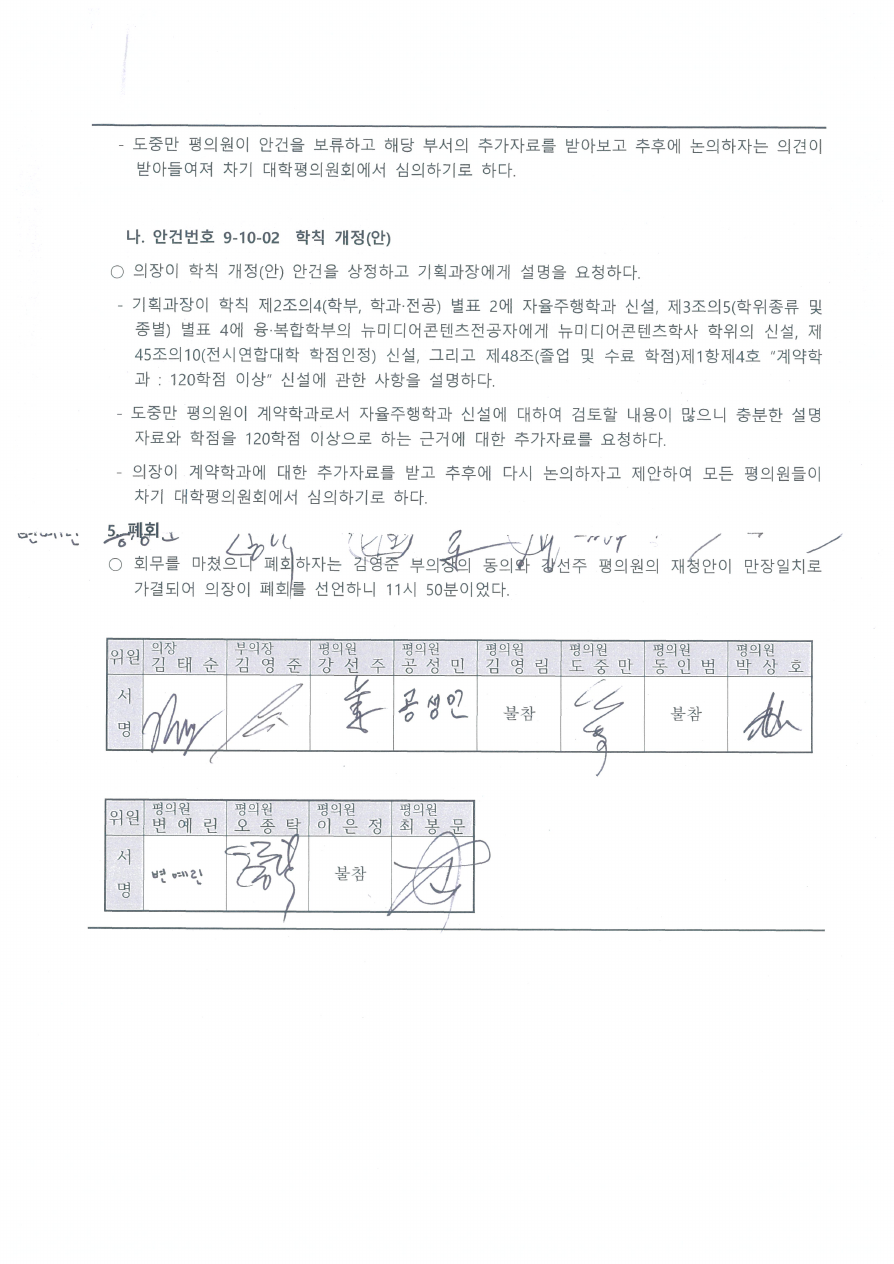 - 도중만 평의원이 안건을 보류하고 해당 부서의 추가자료를 받아보고 추후에 논의하자는 의견이
받아들여져 차기 대학평의원회에서 심의하기로 하다.
나. 안건번호 9-10-02 학칙 개정(안)
○ 의장이 학칙 개정(안) 안건을 상정하고 기획과장에게 설명을 요청하다.
- 기획과장이 학칙 제2조의4(학부, 학과·전공) 별표 2에 자율주행학과 신설, 제3조의5(학위종류 및
종별) 별표 4에 융·복합학부의 뉴미디어콘텐츠전공자에게 뉴미디어콘텐츠학사 학위의 신설, 제
45조의10(전시연합대학 학점인정) 신설, 그리고 제48조(졸업 및 수료 학점)제1항제4호 "계약학
과 : 120학점 이상" 신설에 관한 사항을 설명하다.
- 도중만 평의원이 계약학과로서 자율주행학과 신설에 대하여 검토할 내용이 많으니 충분한 설명
자료와 학점을 120학점 이상으로 하는 근거에 대한 추가자료를 요청하다.
- 의장이 계약학과에 대한 추가자료를 받고 추후에 다시 논의하자고 제안하여 모든 평의원들이
차기 대학평의원회에서 심의하기로 하다.
5. 폐회
○ 회무를 마쳤으니 폐회하자는 김영준 부의장의 동의와 강선주 평의원의 재청안이 만장일치로
가결되어 의장이 폐회를 선언하니 11시 50분이었다.
위원 의장 부의장 평의원 평의원 평의원 평의원 평의원 평의원
김태순 김영준 강선주 공성민 김영림 도중만 동인범 박상호
서명 공성민 불참 불참
위원 평의원 평의원 평의원 평의원
변예린 오종탁 이은정 최봉문
서명 변예린 오종탁 불참